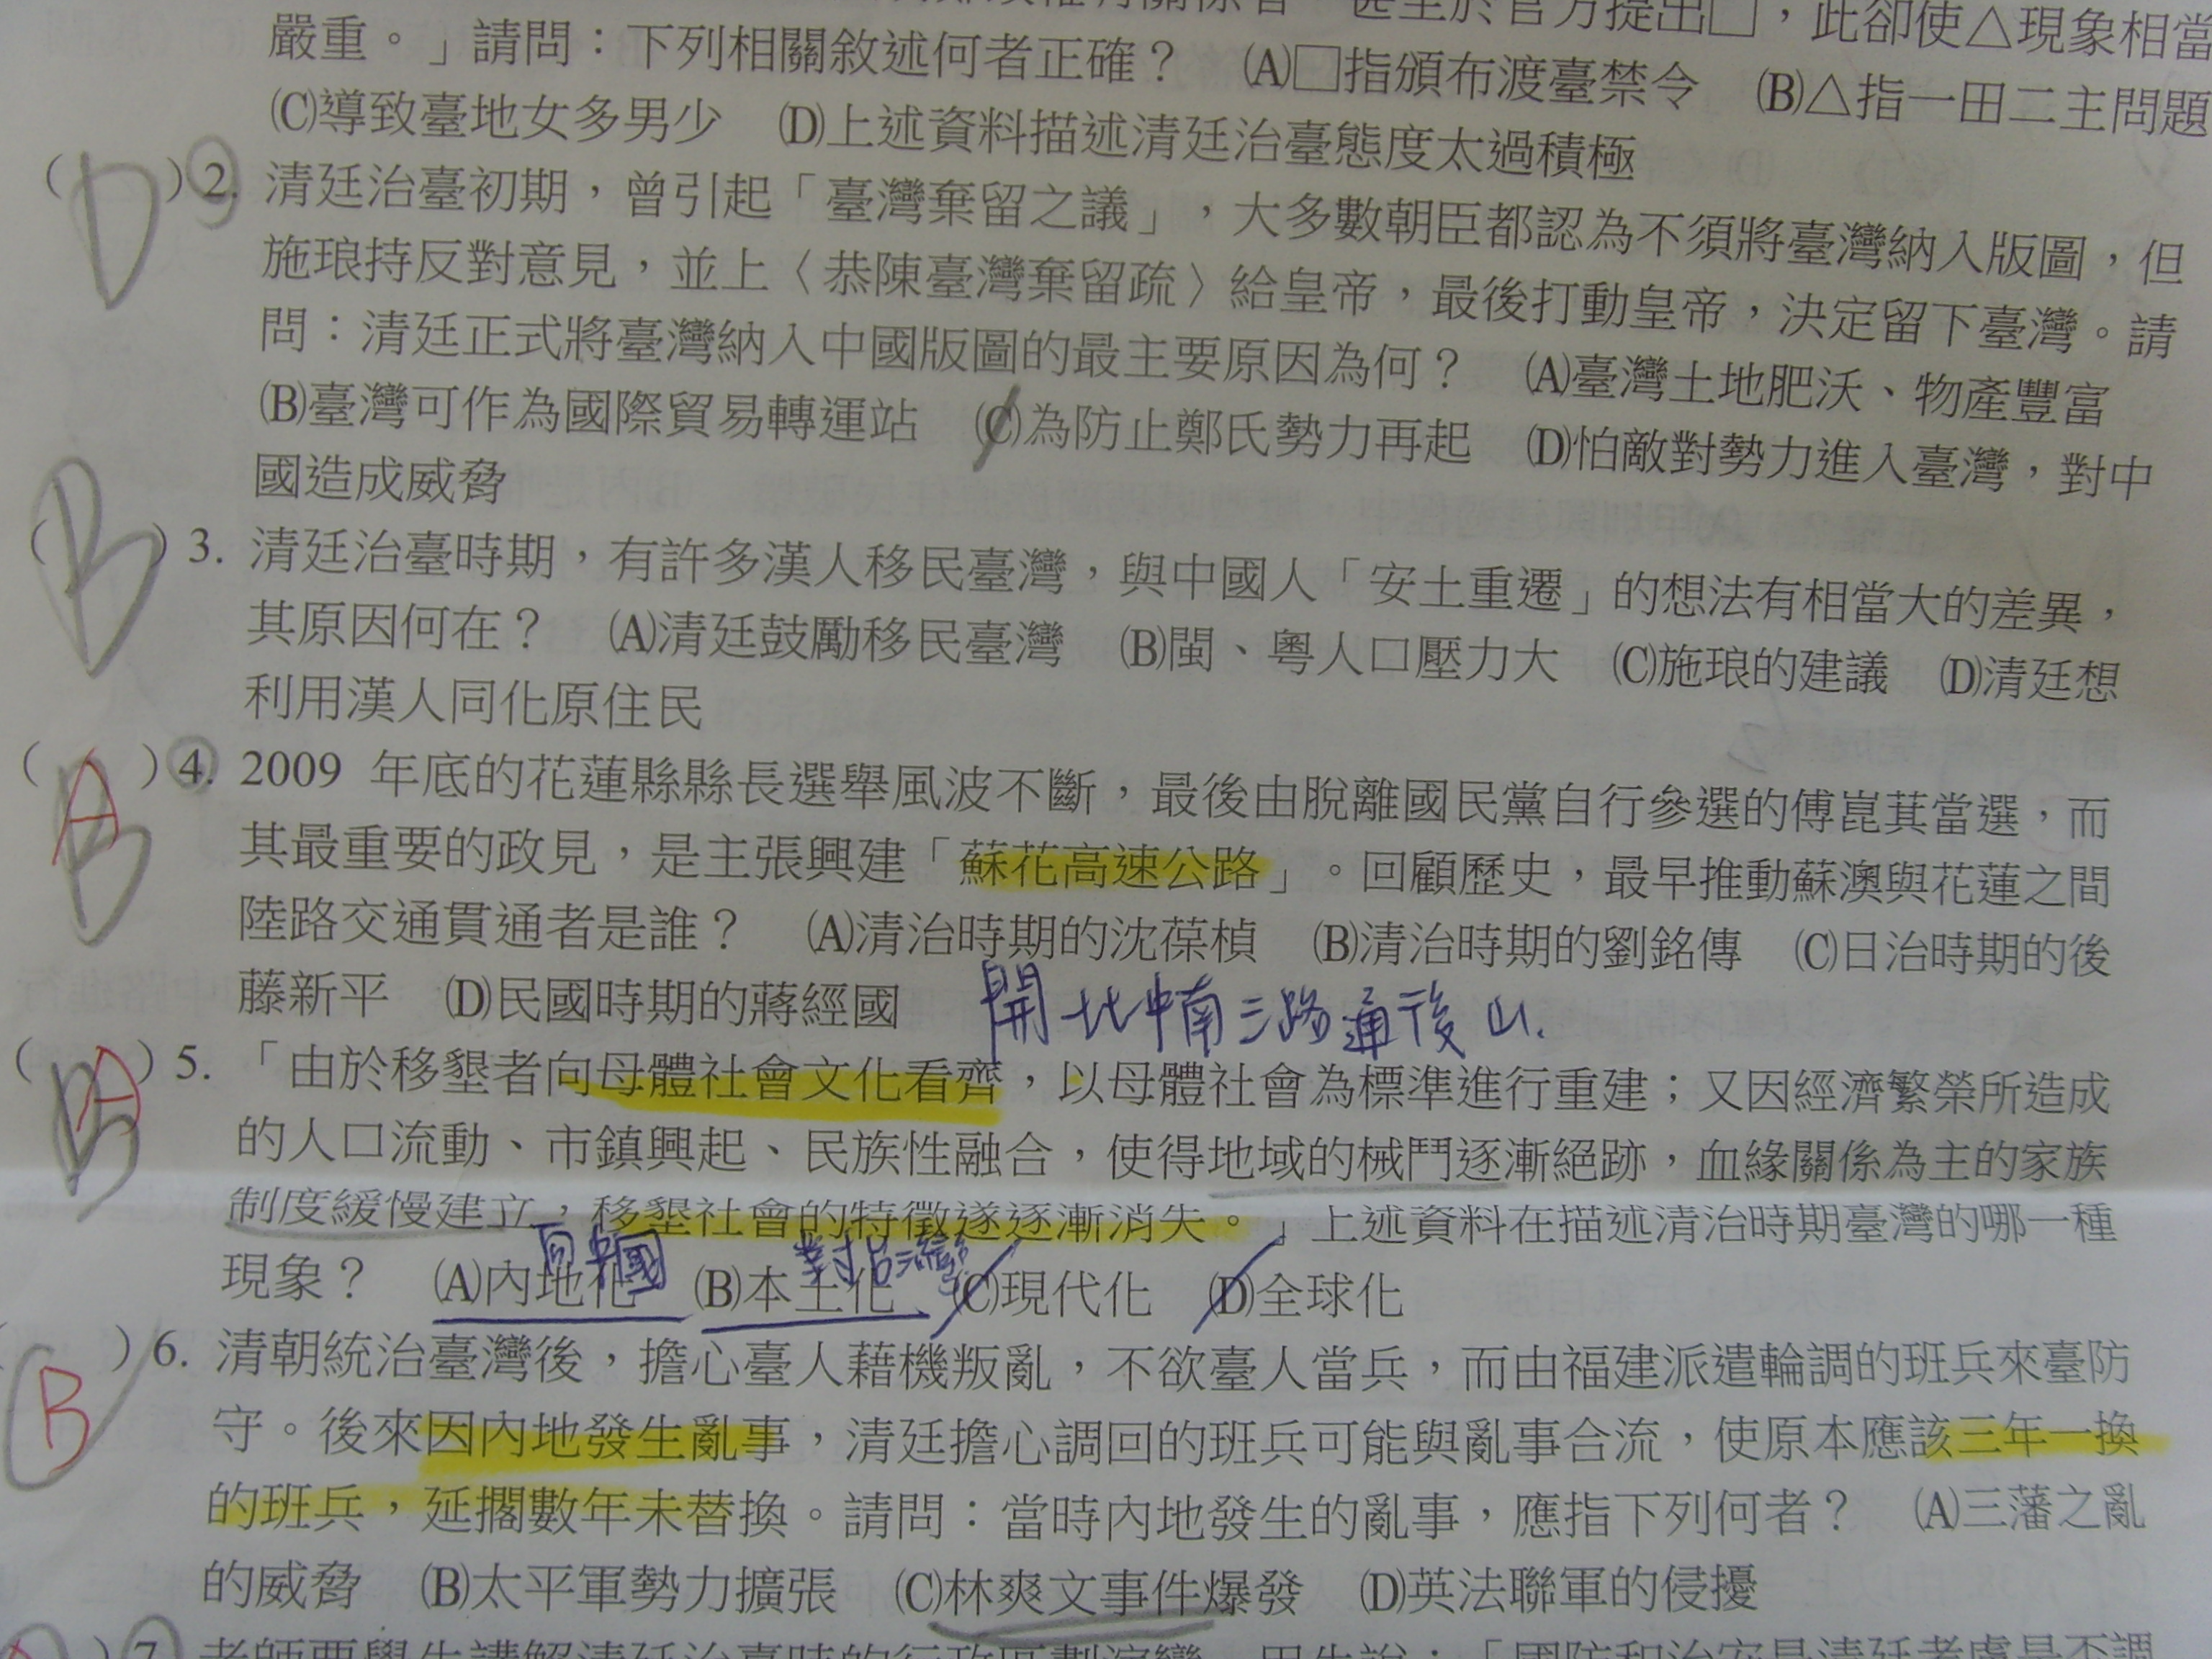 甚至於官方提出□，此卻使△現象相當
嚴重。」請問：下列相關敘述何者正確？ (A)□指頒布渡臺禁令 (B)△指一田二主問題
(C)導致臺地女多男少 (D)上述資料描述清廷治臺態度太過積極
( D ) 2. 清廷治臺初期，曾引起「臺灣棄留之議」，大多數朝臣都認為不須將臺灣納入版圖，但
施琅持反對意見，並上〈恭陳臺灣棄留疏〉給皇帝，最後打動皇帝，決定留下臺灣。請
問：清廷正式將臺灣納入中國版圖的最主要原因為何？ (A)臺灣土地肥沃、物產豐富
(B)臺灣可作為國際貿易轉運站 (C)為防止鄭氏勢力再起 (D)怕敵對勢力進入臺灣，對中
國造成威脅
( B ) 3. 清廷治臺時期，有許多漢人移民臺灣，與中國人「安土重遷」的想法有相當大的差異，
其原因何在？ (A)清廷鼓勵移民臺灣 (B)閩、粵人口壓力大 (C)施琅的建議 (D)清廷想
利用漢人同化原住民
( B A ) 4. 2009 年底的花蓮縣縣長選舉風波不斷，最後由脫離國民黨自行參選的傅崑萁當選，而
其最重要的政見，是主張興建「蘇花高速公路」。回顧歷史，最早推動蘇澳與花蓮之間
陸路交通貫通者是誰？ (A)清治時期的沈葆楨 (B)清治時期的劉銘傳 (C)日治時期的後
藤新平 (D)民國時期的蔣經國 開北中南三路通後山.
( B A ) 5. 「由於移墾者向母體社會文化看齊，以母體社會為標準進行重建；又因經濟繁榮所造成
的人口流動、市鎮興起、民族性融合，使得地域的械鬥逐漸絕跡，血緣關係為主的家族
制度緩慢建立，移墾社會的特徵遂逐漸消失。」上述資料在描述清治時期臺灣的哪一種
中國 對台灣
現象？ (A)內地化 (B)本土化 (C)現代化 (D)全球化
( B ) 6. 清朝統治臺灣後，擔心臺人藉機叛亂，不欲臺人當兵，而由福建派遣輪調的班兵來臺防
守。後來因內地發生亂事，清廷擔心調回的班兵可能與亂事合流，使原本應該三年一換
的班兵，延擱數年未替換。請問：當時內地發生的亂事，應指下列何者？ (A)三藩之亂
的威脅 (B)太平軍勢力擴張 (C)林爽文事件爆發 (D)英法聯軍的侵擾
) 7. 老師要學生講解清廷治臺時的行政區劃演變，甲生說：「國防和治安是清廷考慮是否調